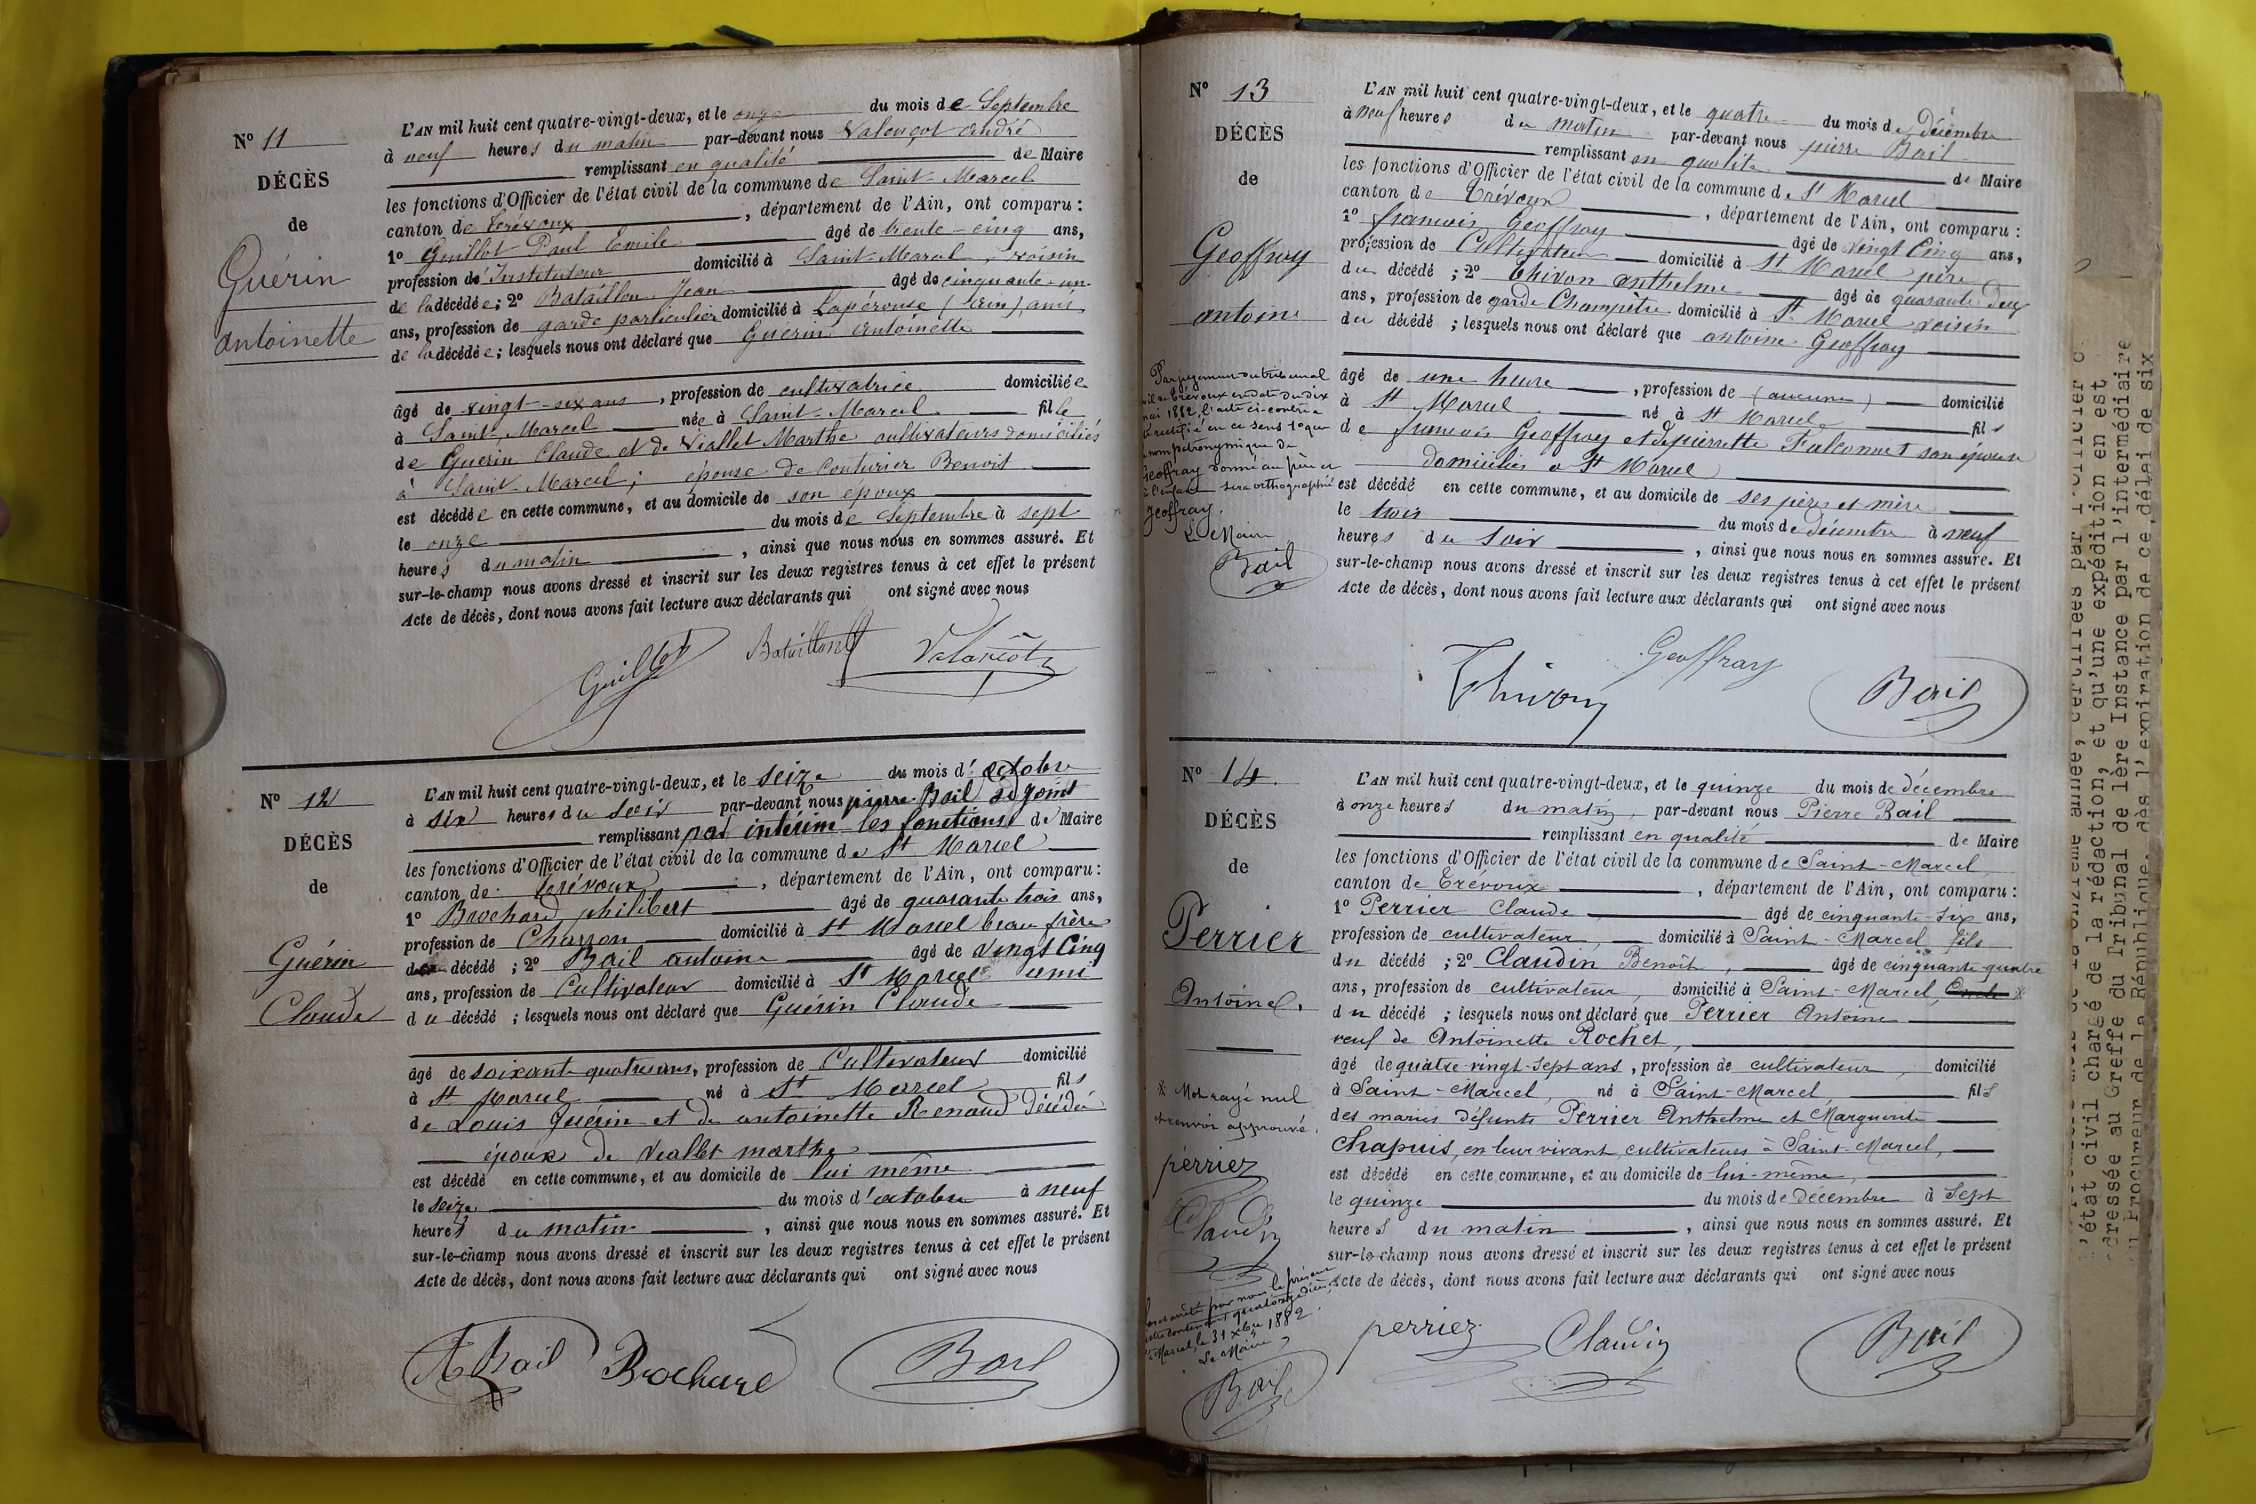 N° 11
DÉCÈS
de
Guérin
antoinette
L'AN mil huit cent quatre-vingt-deux, et le onze du mois de Septembre
à neuf heures du matin par-devant nous Valençot andré
remplissant en qualité de Maire
les fonctions d'Officier de l'état civil de la commune de Saint-Marcel
canton de Trévoux, département de l'Ain, ont comparu :
1° Guillot Paul Emile âgé de trente-cinq ans,
profession de Instituteur domicilié à Saint-Marcel, voisin
de la décédée ; 2° Bataillon Jean âgé de cinquante-un
ans, profession de garde particulier domicilié à Lapérouse (Ain), ami
de la décédée ; lesquels nous ont déclaré que Guérin Antoinette
âgé de vingt-six ans, profession de cultivatrice domiciliée
à Saint-Marcel née à Saint-Marcel fille
de Guérin Claude et de Viallet Marthe cultivateurs domiciliés
à Saint-Marcel ; épouse de Couturier Benoit
est décédée en cette commune, et au domicile de son époux
le onze du mois de Septembre à sept
heures du matin, ainsi que nous nous en sommes assuré. Et
sur-le-champ nous avons dressé et inscrit sur les deux registres tenus à cet effet le présent
Acte de décès, dont nous avons fait lecture aux déclarants qui ont signé avec nous
Guillot Bataillon Valançot
N° 12
DÉCÈS
de
Guérin
Claude
L'AN mil huit cent quatre-vingt-deux, et le seize du mois d'octobre
à six heures du soir par-devant nous pierre Bail adjoint
remplissant par intérim les fonctions de Maire
les fonctions d'Officier de l'état civil de la commune de St Marcel
canton de trévoux, département de l'Ain, ont comparu :
1° Brochard philibert âgé de quarante trois ans,
profession de Charron domicilié à St Marcel beau frère
du décédé ; 2° Bail antoine âgé de vingt Cinq
ans, profession de Cultivateur domicilié à St Marcel ami
du décédé ; lesquels nous ont déclaré que Guérin Claude
âgé de soixante quatre ans, profession de Cultivateur domicilié
à St Marcel né à St Marcel fils
de Louis Guérin et de antoinette Renaud décédée
époux de Viallet marthe
est décédé en cette commune, et au domicile de lui même
le seize du mois d'octobre à neuf
heures du matin, ainsi que nous nous en sommes assuré. Et
sur-le-champ nous avons dressé et inscrit sur les deux registres tenus à cet effet le présent
Acte de décès, dont nous avons fait lecture aux déclarants qui ont signé avec nous
A Bail Brochard Bail
N° 13
DÉCÈS
de
Geoffroy
antoine
Par jugement du tribunal
civil de Trévoux en date du dix
mai 1882, l'acte ci-contre
rectifié en ce sens que
nom patronymique de
Geoffray donné au père et
à l'enfant sera orthographié
Geoffray.
Le Maire
Bail
L'AN mil huit cent quatre-vingt-deux, et le quatre du mois de Décembre
à neuf heures du matin par-devant nous pierre Bail
remplissant en qualite de Maire
les fonctions d'Officier de l'état civil de la commune de St Marcel
canton de Trévoux, département de l'Ain, ont comparu :
1° francois Geoffroy âgé de vingt Cinq ans,
profession de Cultivateur domicilié à St Marcel père
du décédé ; 2° Thivon anthelme âgé de quarante deux
ans, profession de garde Champêtre domicilié à St Marcel voisin
du décédé ; lesquels nous ont déclaré que antoine Geoffroy
âgé de une heure, profession de (aucune) domicilié
à St Marcel né à St Marcel fils
de francois Geoffroy et de pierrette Falconnet son épouse
domiciliés a St Marcel
est décédé en cette commune, et au domicile de ses père et mère
le trois du mois de décembre à neuf
heures du soir, ainsi que nous nous en sommes assuré. Et
sur-le-champ nous avons dressé et inscrit sur les deux registres tenus à cet effet le présent
Acte de décès, dont nous avons fait lecture aux déclarants qui ont signé avec nous
Thivon Geoffray Bail
N° 14.
DÉCÈS
de
Perrier
Antoine.
* Mot rayé nul
et renvoi approuvé.
perriez
Claudin
L'AN mil huit cent quatre-vingt-deux, et le quinze du mois de décembre
à onze heures du matin, par-devant nous Pierre Bail
remplissant en qualité de Maire
les fonctions d'Officier de l'état civil de la commune de Saint-Marcel
canton de Trévoux, département de l'Ain, ont comparu :
1° Perrier Claude, âgé de cinquante-six ans,
profession de cultivateur, domicilié à Saint-Marcel fils
du décédé ; 2° Claudin Benoît, âgé de cinquante quatre
ans, profession de cultivateur, domicilié à Saint-Marcel, *
du décédé ; lesquels nous ont déclaré que Perrier Antoine
veuf de Antoinette Rochet,
âgé de quatre-vingt-sept ans, profession de cultivateur, domicilié
à Saint-Marcel, né à Saint-Marcel, fils
des mariés défunts Perrier Anthelme et Marguerite
Chapuis, en leur vivant, cultivateurs à Saint-Marcel,
est décédé en cette commune, et au domicile de lui-même,
le quinze du mois de décembre à sept
heures du matin, ainsi que nous nous en sommes assuré. Et
sur-le-champ nous avons dressé et inscrit sur les deux registres tenus à cet effet le présent
Acte de décès, dont nous avons fait lecture aux déclarants qui ont signé avec nous
perriez Claudin Bail
arrêté par nous le présent
contenant quatorze décès
Marcel, le 31 Xbre 1882.
Le Maire
Bail
l'état civil chargé de la rédaction, et qu'une expédition en est
dressée au Greffe du Tribunal de 1ère Instance par l'intermédiaire
Procureur de la République, dès l'expiration de ce délai de six